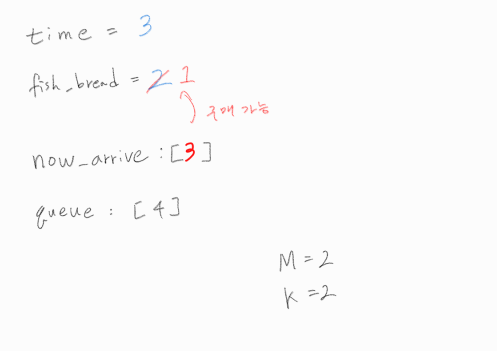 time = 3
fish_bread = 2 1
구매 가능
now_arrive : [3]
queue : [4]
M = 2
K = 2